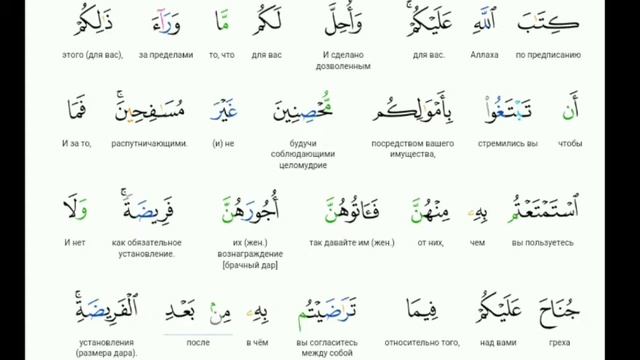 كِتَٰبَ ٱللَّهِ عَلَيْكُمْ ۚ وَأُحِلَّ لَكُم مَّا وَرَآءَ ذَٰلِكُمْ
по предписанию Аллаха для вас. И сделано дозволенным для вас то, что за пределами этого (для вас),
أَن تَبْتَغُوا۟ بِأَمْوَٰلِكُم مُّحْصِنِينَ غَيْرَ مُسَٰفِحِينَ ۚ فَمَا
чтобы стремились вы посредством вашего имущества, будучи соблюдающими целомудрие (и) не распутничающими. И за то,
ٱسْتَمْتَعْتُم بِهِۦ مِنْهُنَّ فَـَٔاتُوهُنَّ أُجُورَهُنَّ فَرِيضَةً ۚ وَلَا
вы пользуетесь чем от них, так давайте им (жен.) их (жен.) вознаграждение [брачный дар] как обязательное установление. И нет
جُنَاحَ عَلَيْكُمْ فِيمَا تَرَٰضَيْتُم بِهِۦ مِنۢ بَعْدِ ٱلْفَرِيضَةِ ۚ
греха над вами относительно того, вы согласитесь между собой в чём после установления (размера дара).